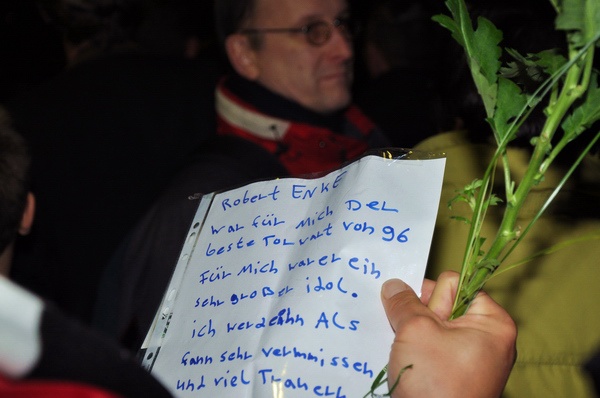 Robert ENKE
war für mich Der
beste Torwart von 96
für mich war er ein
sehr großer idol.
ich werde ihn ALS
fann sehr vermnissen
und viel Trauern